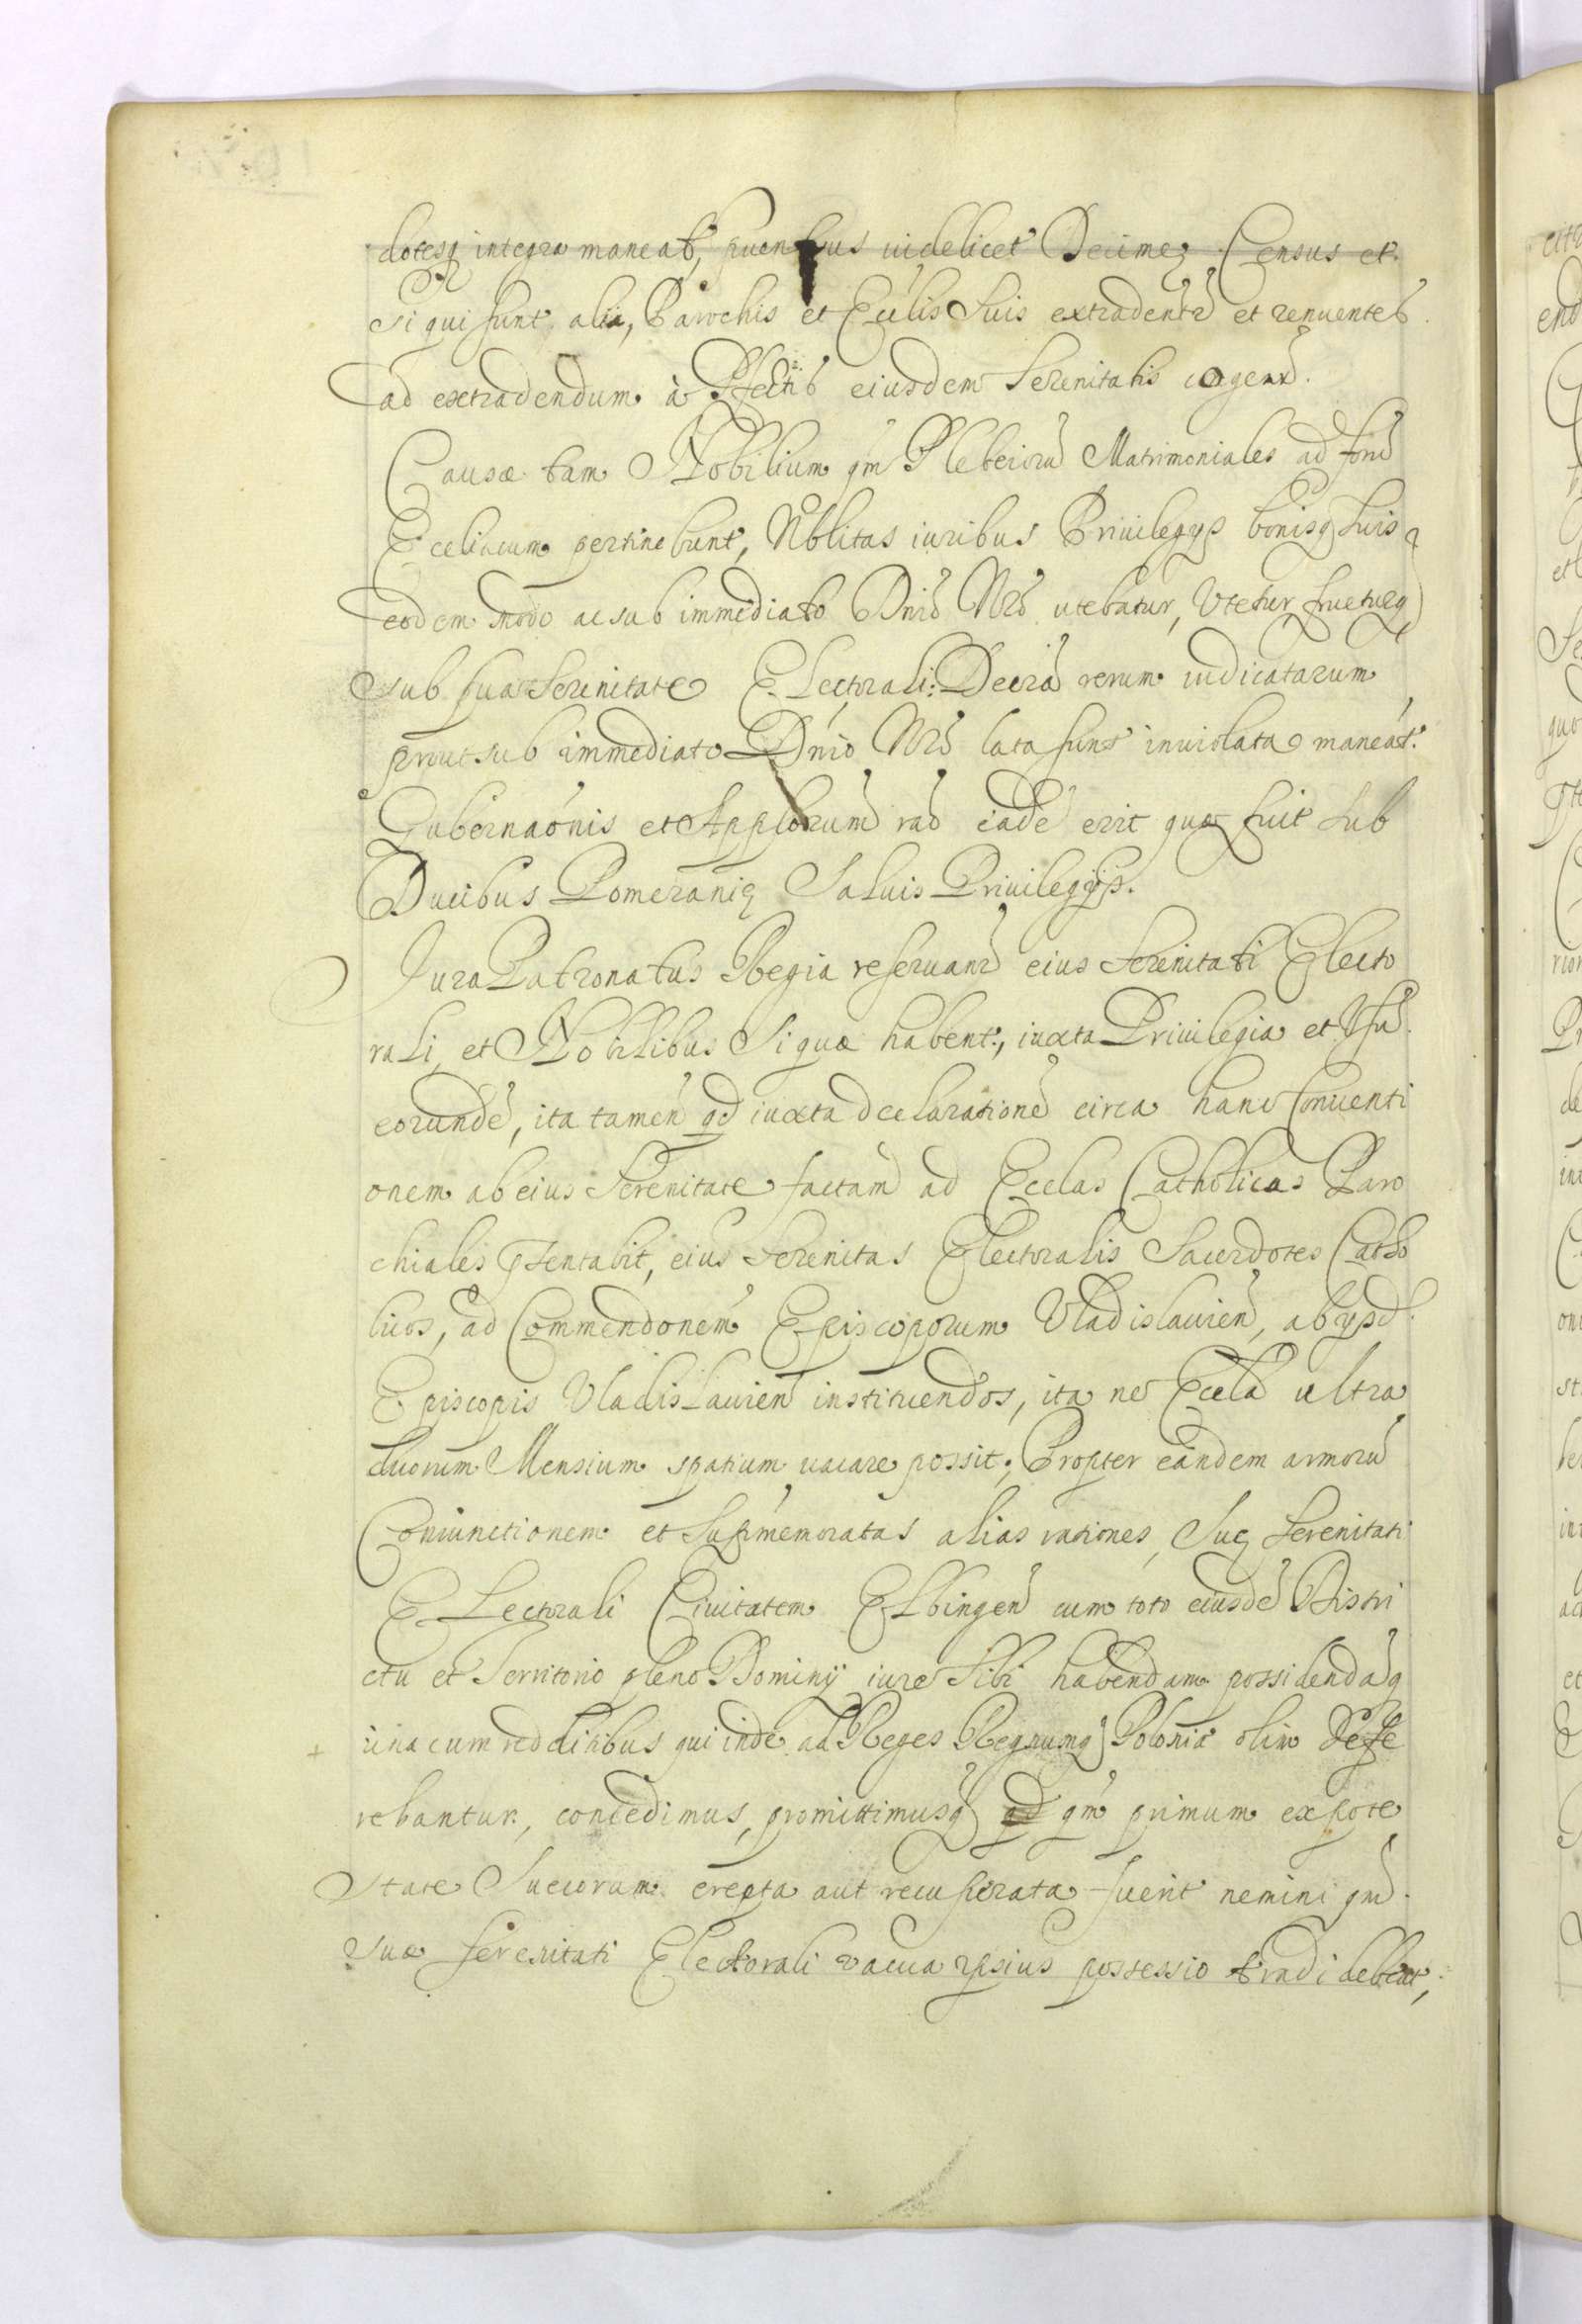 dotesq integra maneat, puentus uidelicet Decimeę Census et
Si qui sunt alia, Parochis et Ecclis Suis extradentr et renuentes
ad extradendum à Pfectis eiusdem Serenitatis cogentr.
Causæ tam Nobilium qm Plebeiorū Matrimoniales ad forū
Eccliacum pertinebunt, Nblitas iuribus Priuilegys bonisq suis
eodem modo ac sub immediato Dnio Nro utebatur, Vtetur frueturq
sub sua Serenitate Electorali: Decrā rerum iudicatarum
prout sub immediato Dnio Nro lata sunt inuiolata maneāt.
Gubernaōnis et Applōrum rāo eadē erit quæ fuit sub
Ducibus Pomeranię Saluis Priuilegijs.
Jura Patronatus Regia reseruantr eius Serenitati Electo
rali, et Nobilibus Si quæ habent, iuxta Priuilegia et Vsū
eorundē, ita tamen qd iuxta dcelarationē circa hanc Conuenti
onem ab eius Serenitate factam ad Ecclas Catholicas Paro
chiales pntabit, eius Serenitas Electoralis Sacerdotes Catho
licos, ad Commendōnem Episcoporum Vladislauien, ab ypsd.
Episcopis Vladislauien instituendos, ita ne Eccla ultra
duorum Mensium spatium uacare possit; Propter eandem armorū
Coniunctionem et Suprmemoratas alias rationes, Suę Serenitati
Electorali Ciuitatem Elbingen cum toto eiusdē Distri
ctu et Territorio pleno Dominij iure Sibi habendam possidendāq
unacum redditibus qui inde ad Reges Regnumq Poloniæ olim Defe
rebantur, concedimus, promittimusq qd qm primum ex pote
state Suecorum erepta aut recuperata fuerit nemini qm
suæ serenitati Electorali vacua ypsius possessio tradi debeat,